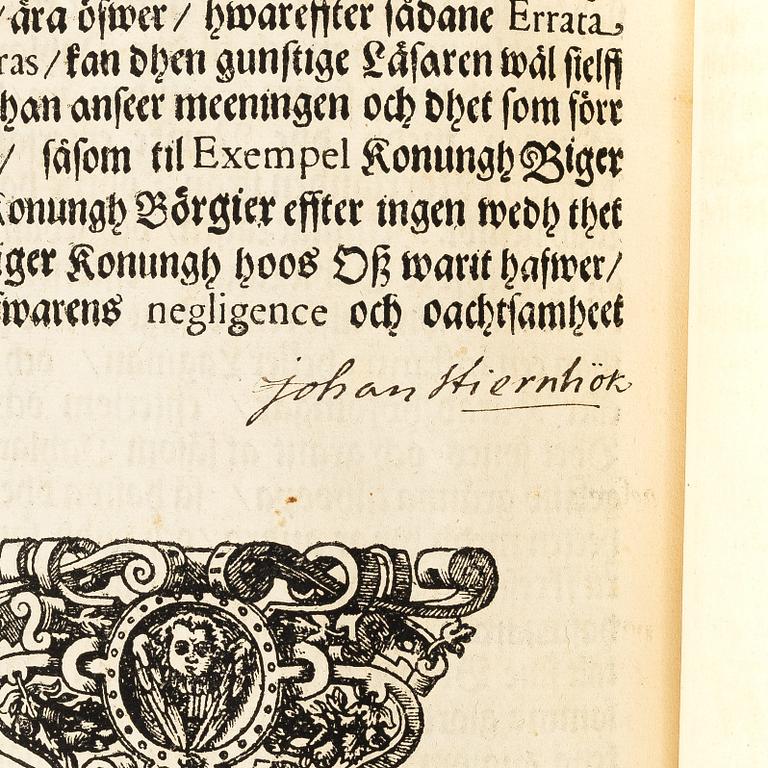 / ära öfwer / hwareffter sådane Errata
ras / kan dhen gunstige Läsaren wäl sielff
han anseer meeningen och dhet som förr
/ såsom til Exempel Konungh Biger
Konungh Börgier effter ingen wedh thet
iger Konungh hoos Oß warit hafwer /
warens negligence och oachtsamheet
Johan Stiernhök